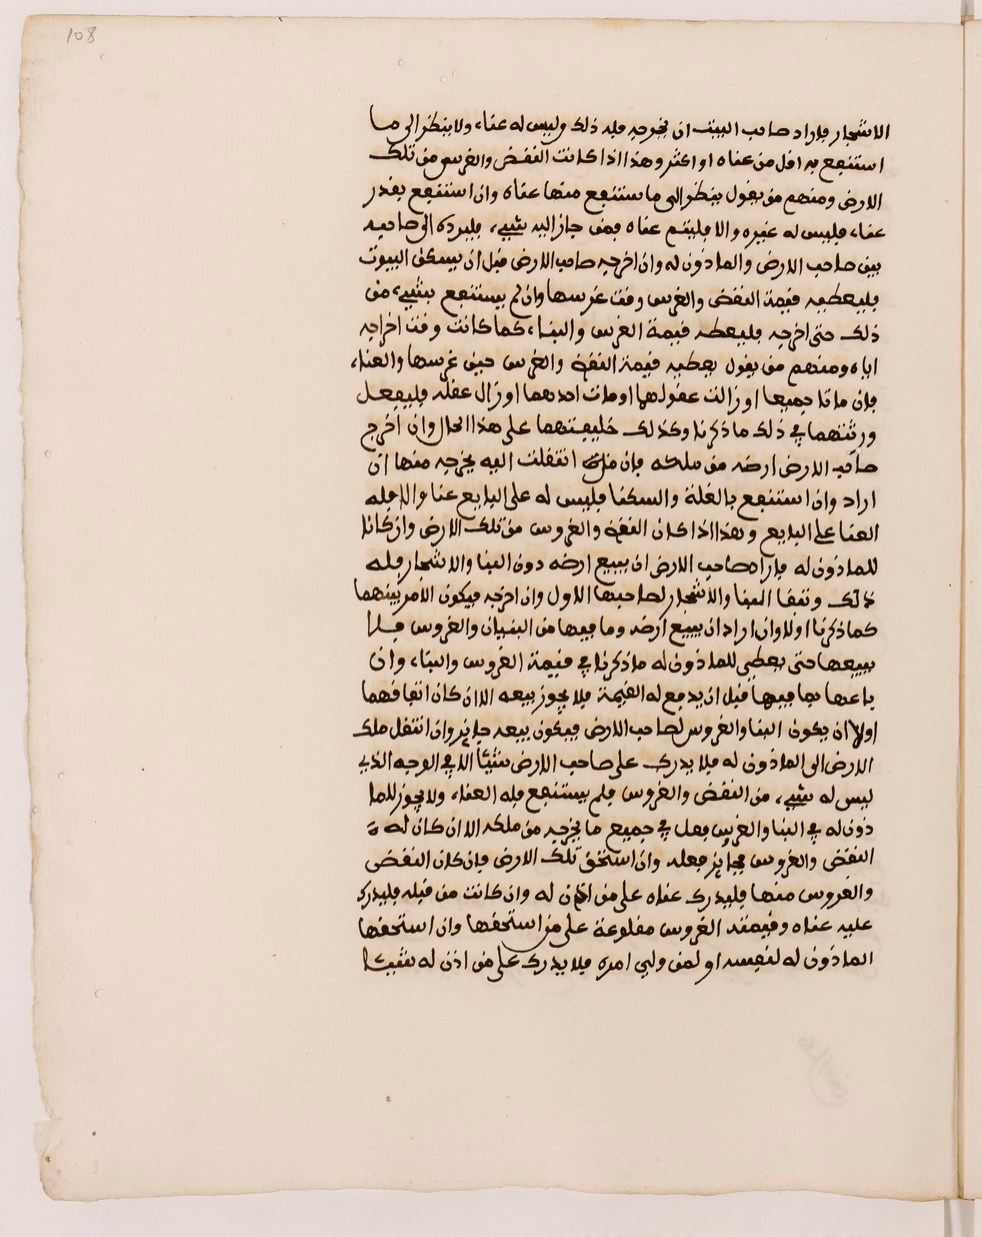 108
الاشجار فاراد صاحب البيت ان يخرجه فله ذلك وليس له عناء ولا ينظر الى ما
استنفع به اقل من عناه او اكثر وهذا اذا كانت النقض والغرس من تلك
الارض ومنهم من يقول ينظر الى ما ستنفع منها عناه وان استنفع بقدر
عناء فليس له غيره والا فليتم عناه فمن جاز اليه شيء فليرده الى صاحبه
بين صاحب الارض والماذون له وان اخرجه صاحب الارض قبل ان يسكن البيوت
فليعطيه قيمة النقض والغرس وقت غرسها وان لم يستنفع بشيء من
ذلك حتى اخرجه فليعطه قيمة الغرس والبناء كما كانت وقت اخراجه
اياه ومنهم من يقول يعطيه قيمة النقض والغرس حين غرسها والعناء
فان ماتا جميعا او زالت عقولهما او مات احدهما او زال عقله فليفعل
ورثتهما في ذلك ما ذكرنا وكذلك خليفتهما على هذا الحال وان اخرج
صاحب الارض ارضه من ملكه فان من انتقلت اليه يخرجه منها ان
اراد وان استنفع بالغلة والسكنا فليس له على البايع عنا والا فله
العنا على البايع وهذا اذا كان النقض والغروس من تلك الارض وان كانا
للماذون له فاراد صاحب الارض ان يبيع ارضه دون البنا والاشجار فله
ذلك وتبقا البنا والاشجار لصاحبها الاول وان اخرجه فيكون الامر بينهما
كما ذكرنا اولا وان اراد ان يبيع ارضه وما فيها من البنيان والغروس فلا
يبيعها حتى يعطي للماذون له ما ذكرنا في قيمة الغروس والبناء وان
باعها بما فيها قبل ان يدفع له القيمة فلا يجوز بيعه الا ان كان اتفاقهما
اولا ان يكون البنا والغروس لصاحب الارض فيكون بيعه جايز وان انتقل ملك
الارض الى الماذون له فلا يدرك على صاحب الارض شيئا الا في الوجه الذي
ليس له شيء من النقض والغروس فلم يستنفع فله العناء ولا يجوز للما
ذون له في البنا والغرس فعل في جميع ما يخرجه من ملكه الا ان كان له
النقض والغروس فجايز فعله وان استحق تلك الارض فان كان النقض
والغروس منها فليدرك عناه على من اذن له وان كانت من قبله فليدرك
عليه عناه وقيمة الغروس مقلوعة على من استحقها وان استحقها
الماذون له لنفسه او لمن ولي امره فلا يدرك على من اذن له شيئا